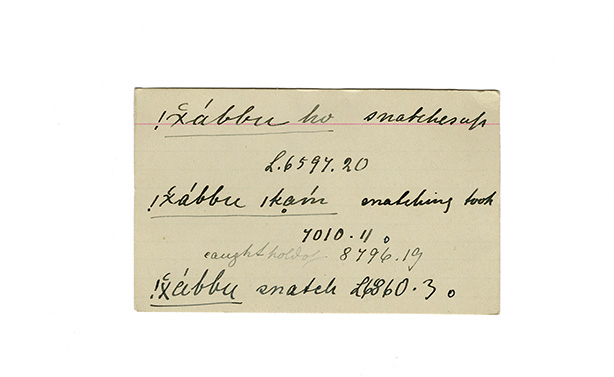 !x̆ábbu ho snatches up
L.6597.20
!x̆ábbu |kạḿ snatching took
7010.11.
caught hold of 8796.19
!x̆ábbu snatch L6860.3.